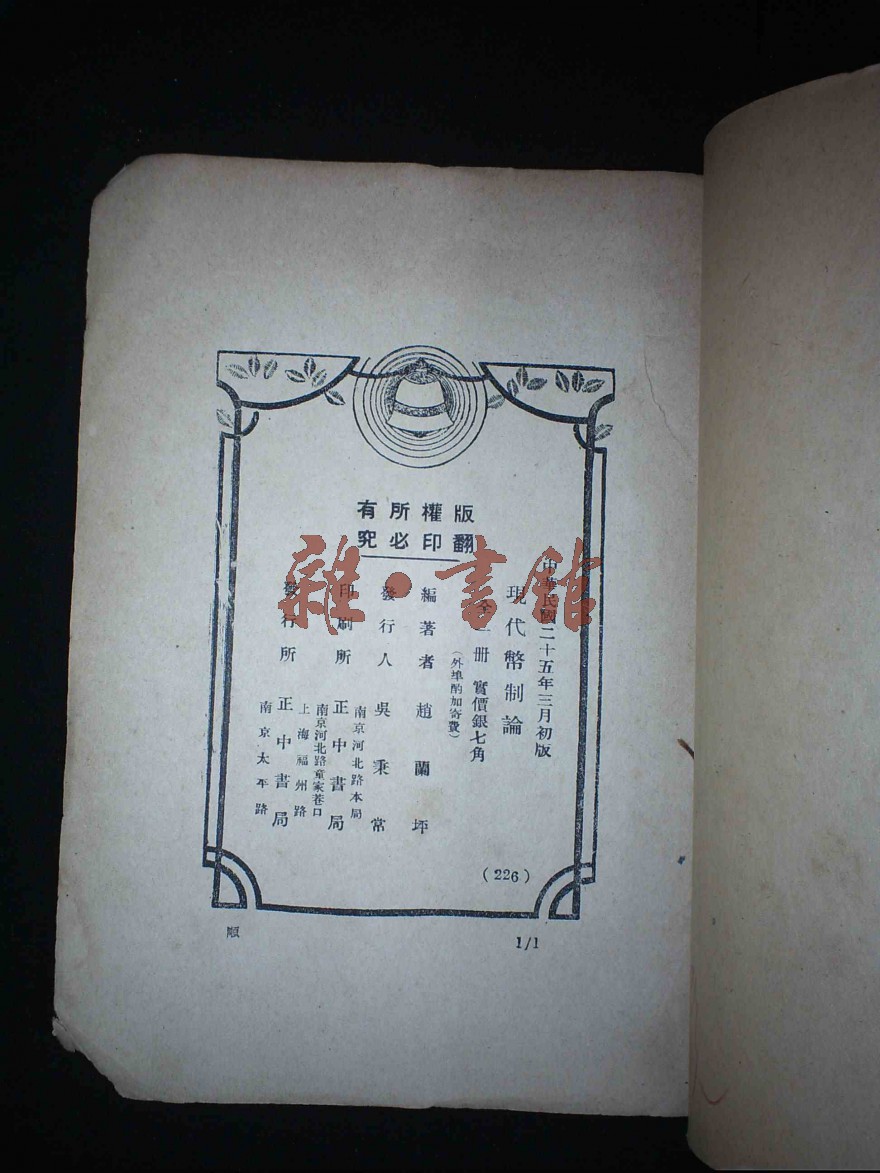 版權所有
翻印必究
中華民國二十五年三月初版
現代幣制論
全一冊 實價銀七角
(外埠酌加寄費)
編著者 趙蘭坪
發行人 吳秉常
南京河北路本局
印刷所 正中書局
南京河北路童家巷口
上海福州路
發行所 正中書局
南京太平路
(226)
順
1/1
雜·書館